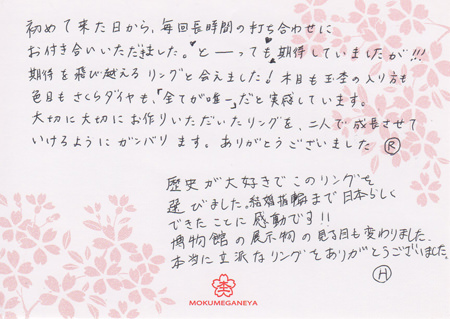 初めて来た日から、毎回長時間の打ち合わせに
お付き合いいただきました。と――っても期待していましたが!!!
期待を飛び越えるリングと会えました!木目も玉杢の入り方も
色目もさくらダイヤも、「全てが唯一」だと実感しています。
大切に大切にお作りいただいたリングを、二人で成長させて
いけるようにガンバリます。ありがとうございました Ⓡ
歴史が大好きでこのリングを
選びました。結婚指輪まで日本らしく
できたことに感動です!!
博物館の展示物の見る目も変わりました。
本当に立派なリングをありがとうございました。
Ⓗ
MOKUMEGANEYA